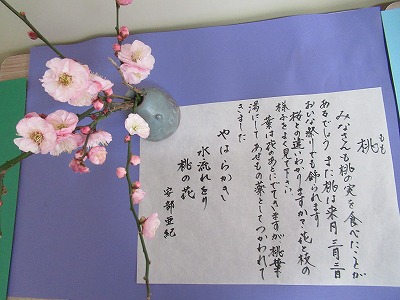 桃
もも
みなさんも桃の実を食べたことが
あるでしょう また桃は来月三月三日
おひな祭りでも飾られます
桜との違いわかりますか？花と枝の
様子をよく見て下さい
葉は花のあとにでてきますが桃葉
湯にしてあせもの薬としてつかわれて
きました
やはらかき
水流れをり
桃の花
安部亜紀